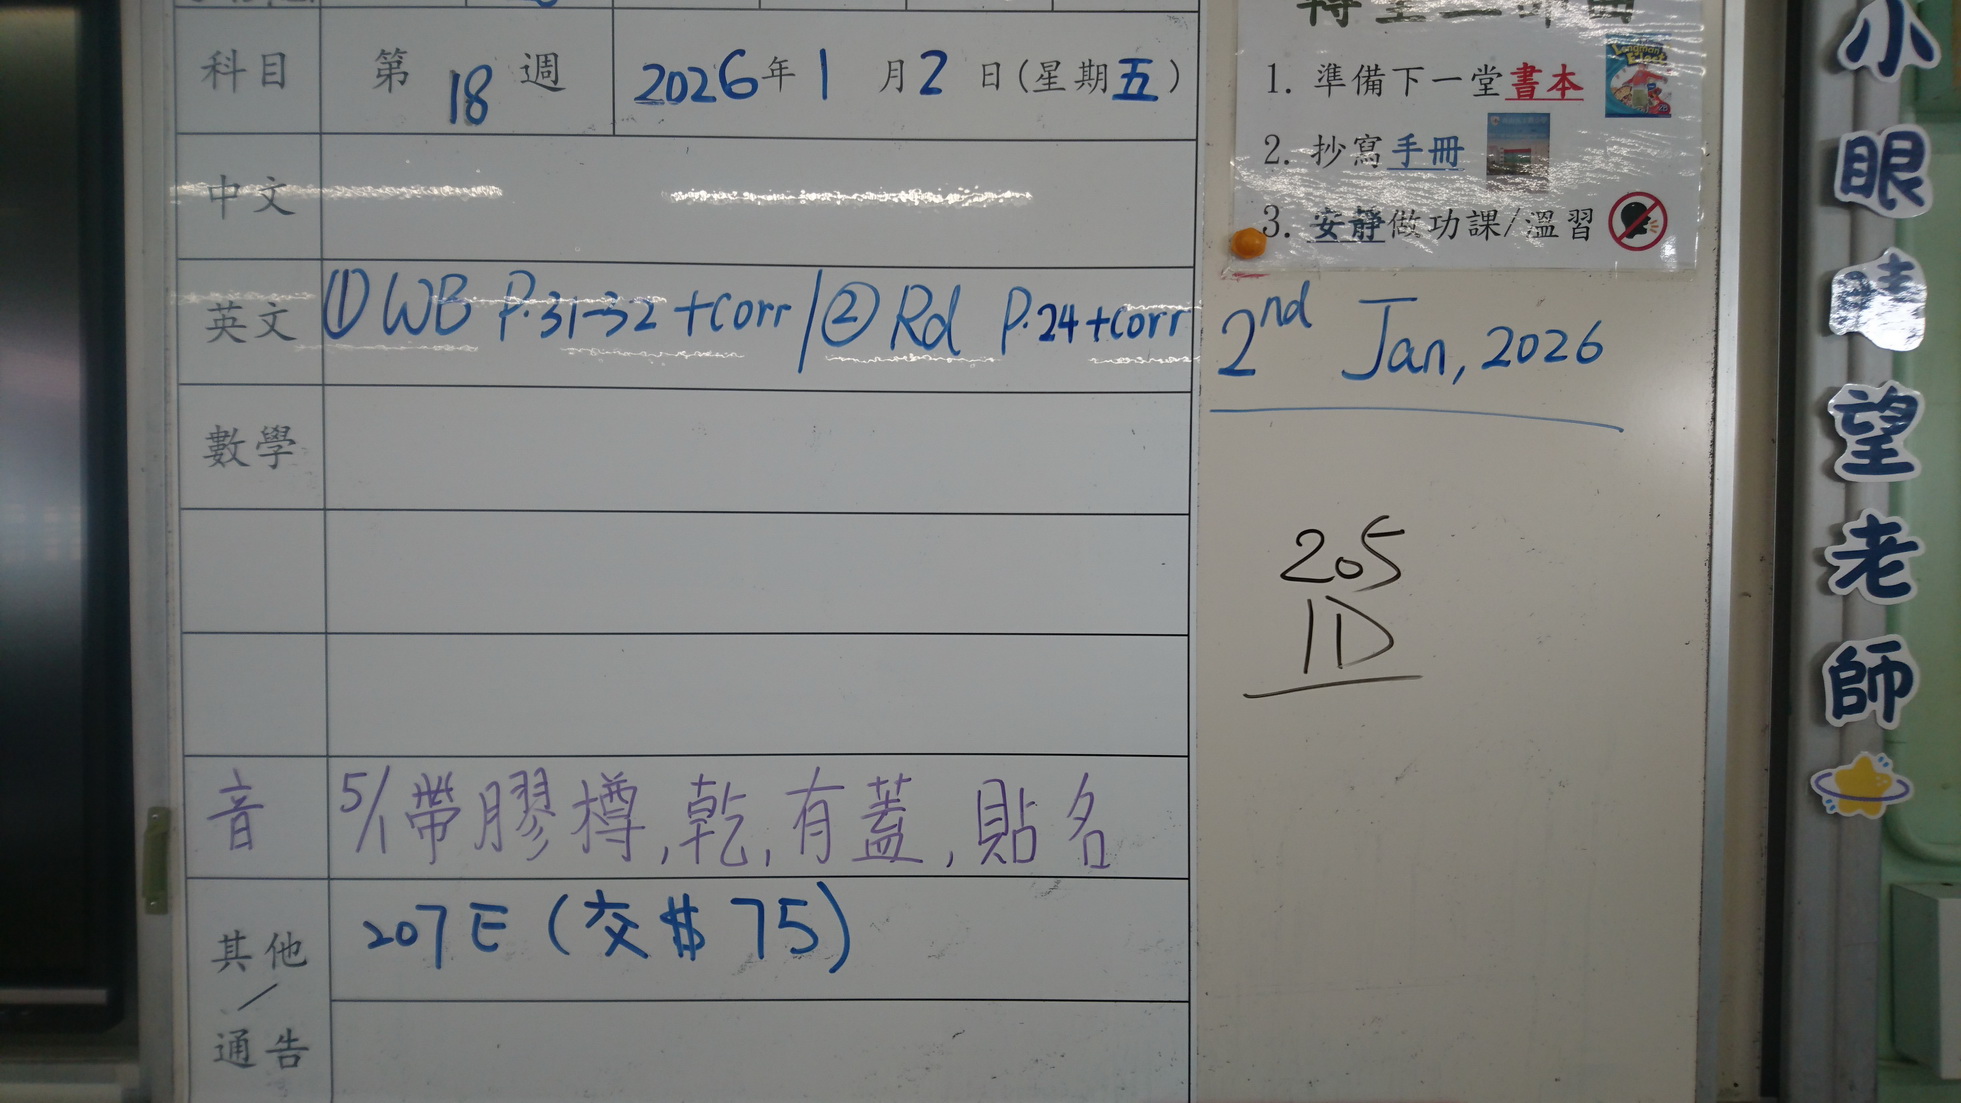 科目 第 18 週 2026年 1 月 2 日(星期五)
中文
英文 ① WB P.31-32 +corr / ② Rd P.24+corr
數學
音 5/1 帶膠樽,乾,有蓋,貼名
其他/通告 207E (交$75)
1. 準備下一堂書本
2. 抄寫手冊
3. 安靜做功課/溫習
2nd Jan, 2026
205
1D
小眼睛望老師